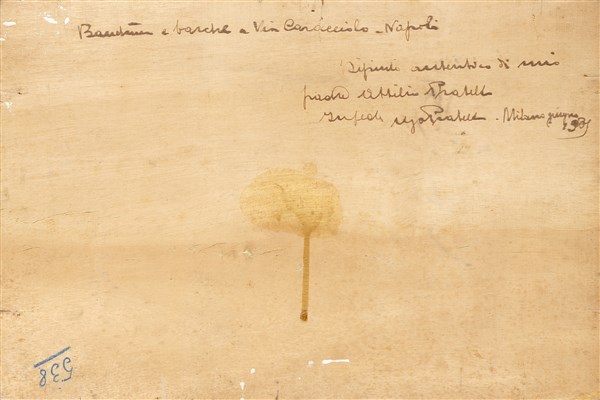 e barche a Via Caracciolo - Napoli
Dipinto autentico di mio
padre Attilio Pratella
In fede Ugo Pratella - Milano giugno
538